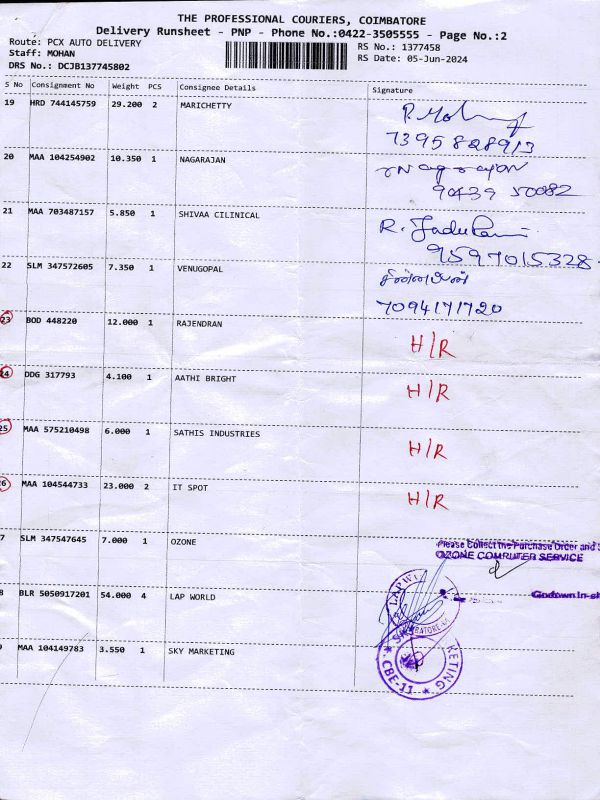 THE PROFESSIONAL COURIERS, COIMBATORE
Delivery Runsheet - PNP - Phone No.:0422-3505555 - Page No.:2
Route: PCX AUTO DELIVERY
RS No.: 1377458
Staff: MOHAN
RS Date: 05-Jun-2024
DRS No.: DCJB137745802
S No Consignment No Weight PCS Consignee Details Signature
19 HRD 744145759 29.200 2 MARICHETTY
7395828913
20 MAA 104254902 10.350 1 NAGARAJAN
nagarajan
90439 50082
21 MAA 703487157 5.850 1 SHIVAA CILINICAL
R.
9597015328
22 SLM 347572605 7.350 1 VENUGOPAL
7094171720
23 BOD 448220 12.000 1 RAJENDRAN H/R
24 DDG 317793 4.100 1 AATHI BRIGHT H/R
25 MAA 575210498 6.000 1 SATHIS INDUSTRIES H/R
26 MAA 104544733 23.000 2 IT SPOT H/R
7 SLM 347547645 7.000 1 OZONE
Please Collect the Purchase Order and
OZONE COMPUTER SERVICE
8 BLR 5050917201 54.000 4 LAP WORLD
Godown In-ch
LAP W
MAA 104149783 3.550 1 SKY MARKETING
KETING
CBE-11